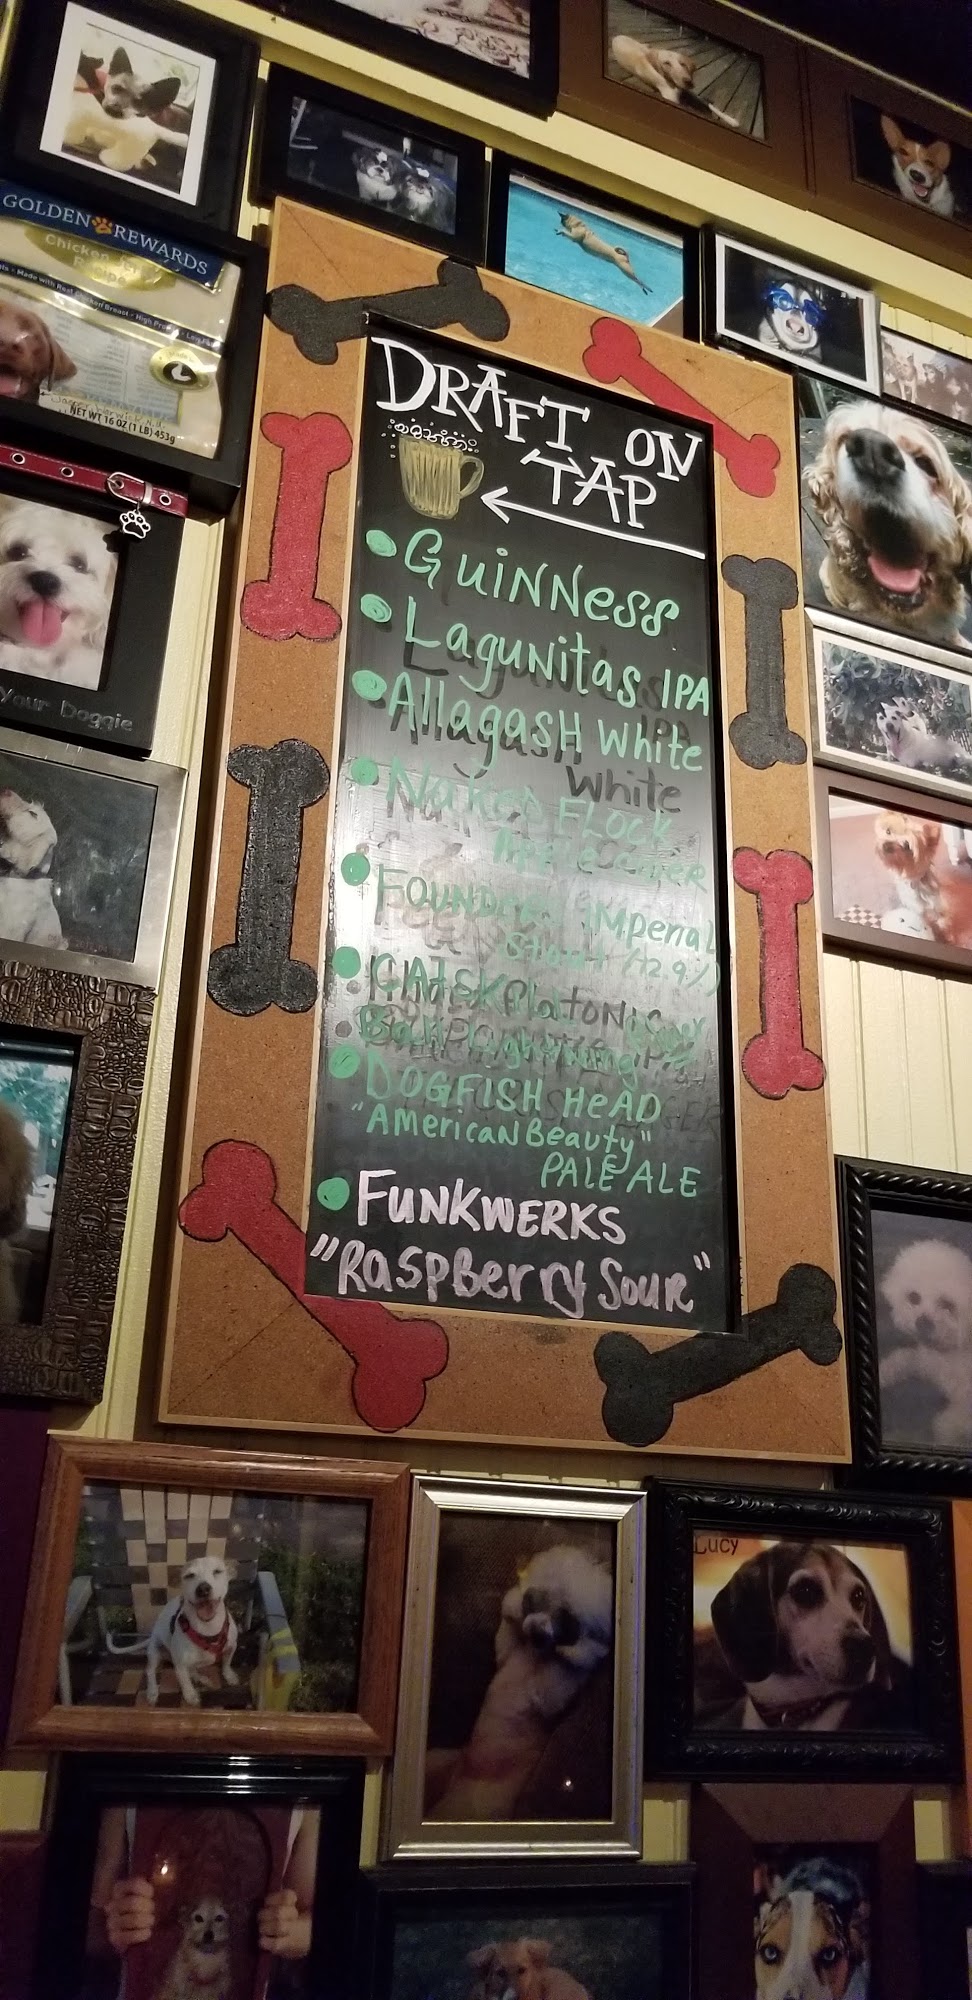 GOLDEN REWARDS
Chicken
NET WT 16 OZ (1 LB) 453g
Your Doggie
DRAFT ON
TAP
GUiNNess
LaguNitas IPA
AllagasH White
Naked FLock
Apple Cider
FOUNDERS iMperiaL
Stout (12.9%)
CATSK
DOGFISH HeAD
"AmericaN Beauty"
PALE ALE
FUNKWERKS
"RaspBerry Sour"
Lucy